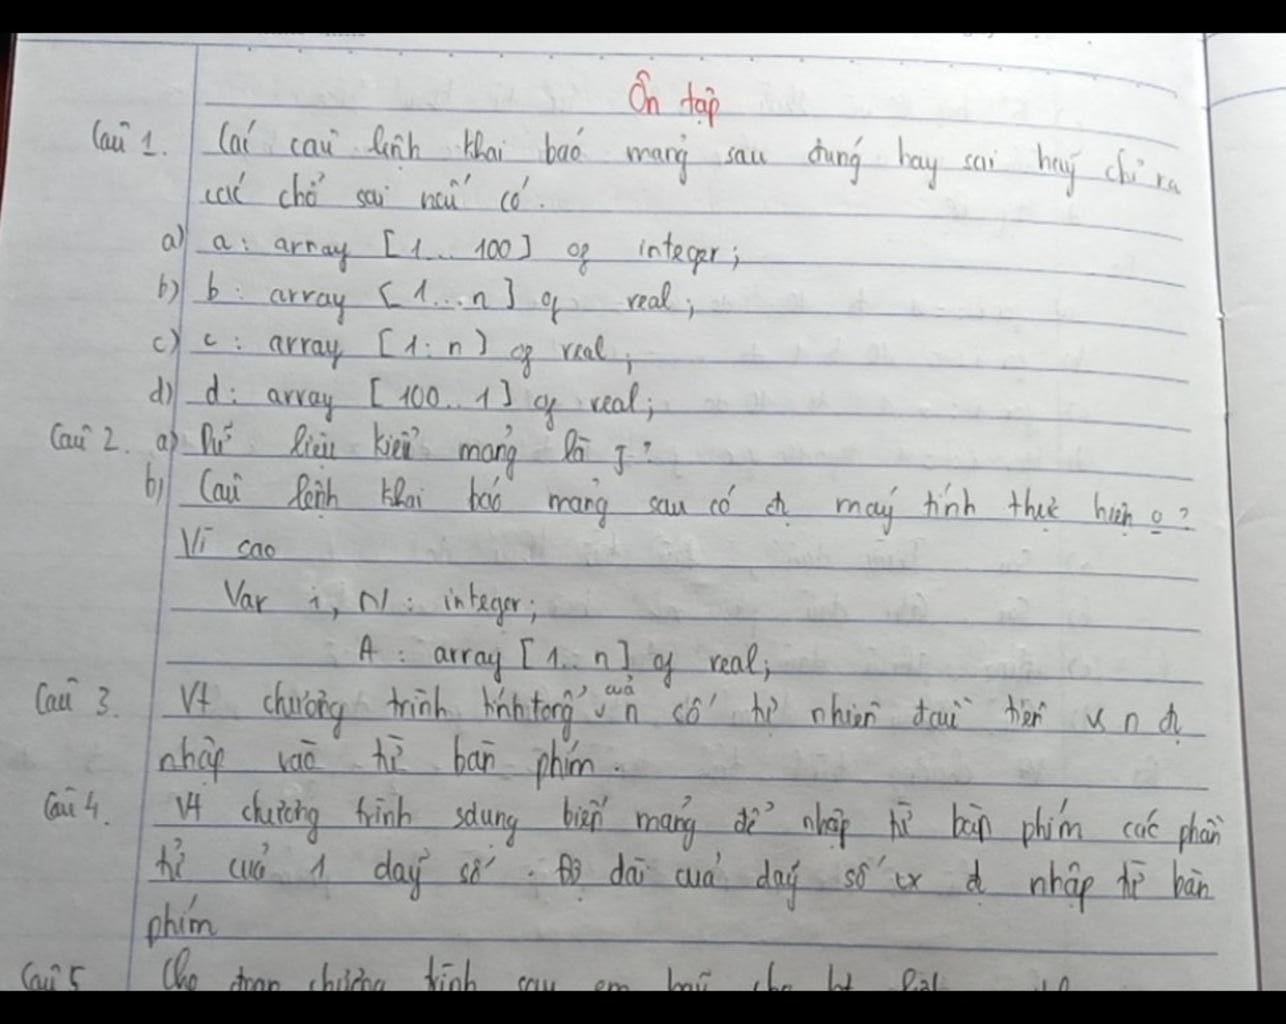 Ôn tập
Câu 1. Các câu lệnh khai báo mảng sau đúng hay sai hãy chỉ ra
các chỗ sai nếu có.
a) a: array [1... 100] of integer;
b) b: array [1...n] of real;
c) c: array [1:n] of real;
d) d: array [100..1] of real;
Câu 2. a) Dữ liệu kiểu mảng là j?
b) Câu lệnh khai báo mảng sau có đ máy tính thực hiện o?
Vì sao
Var i, N: integer;
A: array [1..n] of real;
Câu 3. Vt chương trình tính tổng của n số tự nhiên đầu tiên v n đ
nhập vào từ bàn phím.
Câu 4. Vt chương trình sdung biến mảng để nhập từ bàn phím các phần
tử của 1 dãy số. Độ dài của dãy số cx đ nhập từ bàn
phím
Câu 5 Cho đoạn chương trình sau em hãy cho